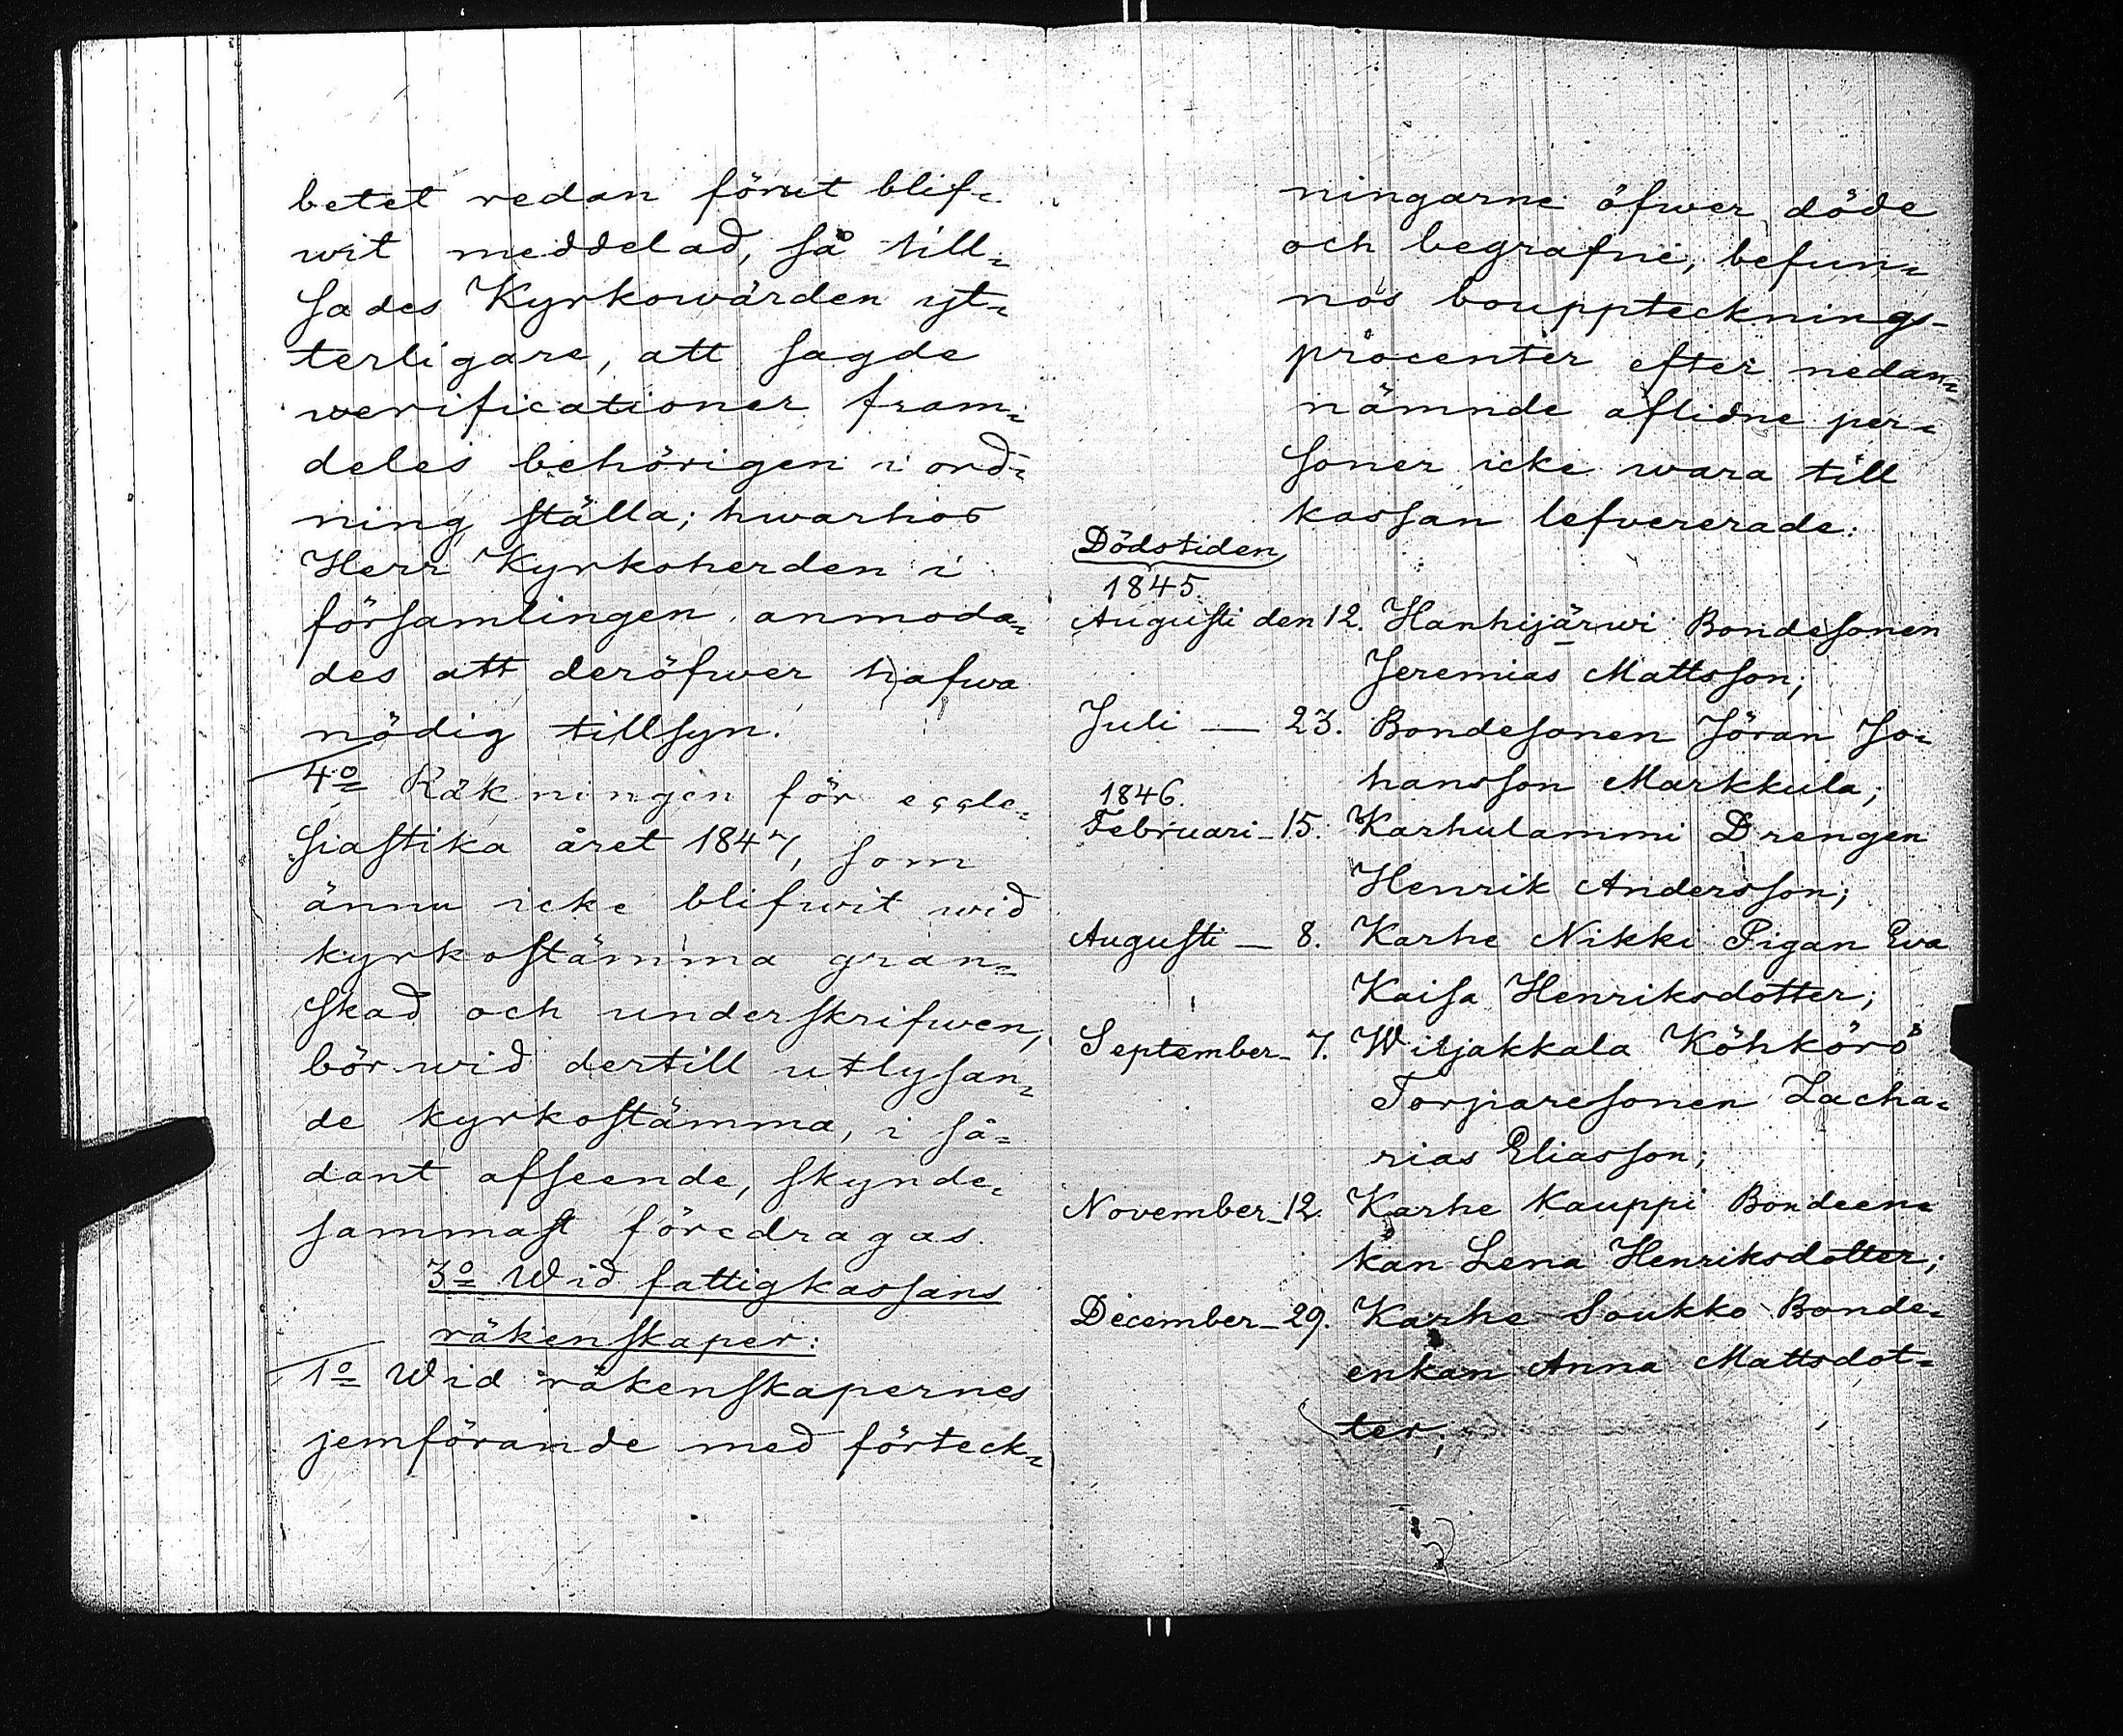 betet redan förut blif-
wit meddelad, så till-
sades Kyrkowärden yt-
terligare, att sagde
werificationer fram-
deles behörigen i ord-
ning ställa; hwarhos
Herr Kyrkoherden i
församlingen anmoda-
des att deröfwer hafwa
nödig tillsyn.
4o Räkningen för eccle-
siastika året 1847, som
ännu icke blifwit wid
kyrkostämma gran-
skad och underskrifwen,
bör wid dertill utlysan-
de kyrkostämma, i så-
dant afseende, skynde-
sammast föredragas.
3o Wid fattigkassans
räkenskaper:
1o Wid räkenskapernes
jemförande med förteck-
ningarne öfwer döde
och begrafne, befun-
nos boupptecknings-
procenter efter nedan-
nämnde aflidne per-
soner icke wara till
kassan lefvererade:
Dödstiden
1845.
Augusti den 12. Hanhijärwi Bondesonen
Jeremias Mattsson;
Juli — 23. Bondesonen Jöran Jo-
hansson Markkula;
1846.
Februari - 15. Karhulammi Drengen
Henrik Andersson;
Augusti — 8. Karhe Nikki Pigan Eva
Kaisa Henriksdotter;
September - 7. Wiljakkala Köhkörö
Torparesonen Zacha-
rias Eliasson;
November - 12. Karhe Kauppi Bondeen-
kan Lena Henriksdotter;
December - 29. Karhe Soukko Bonde-
enkan Anna Mattsdot-
ter;